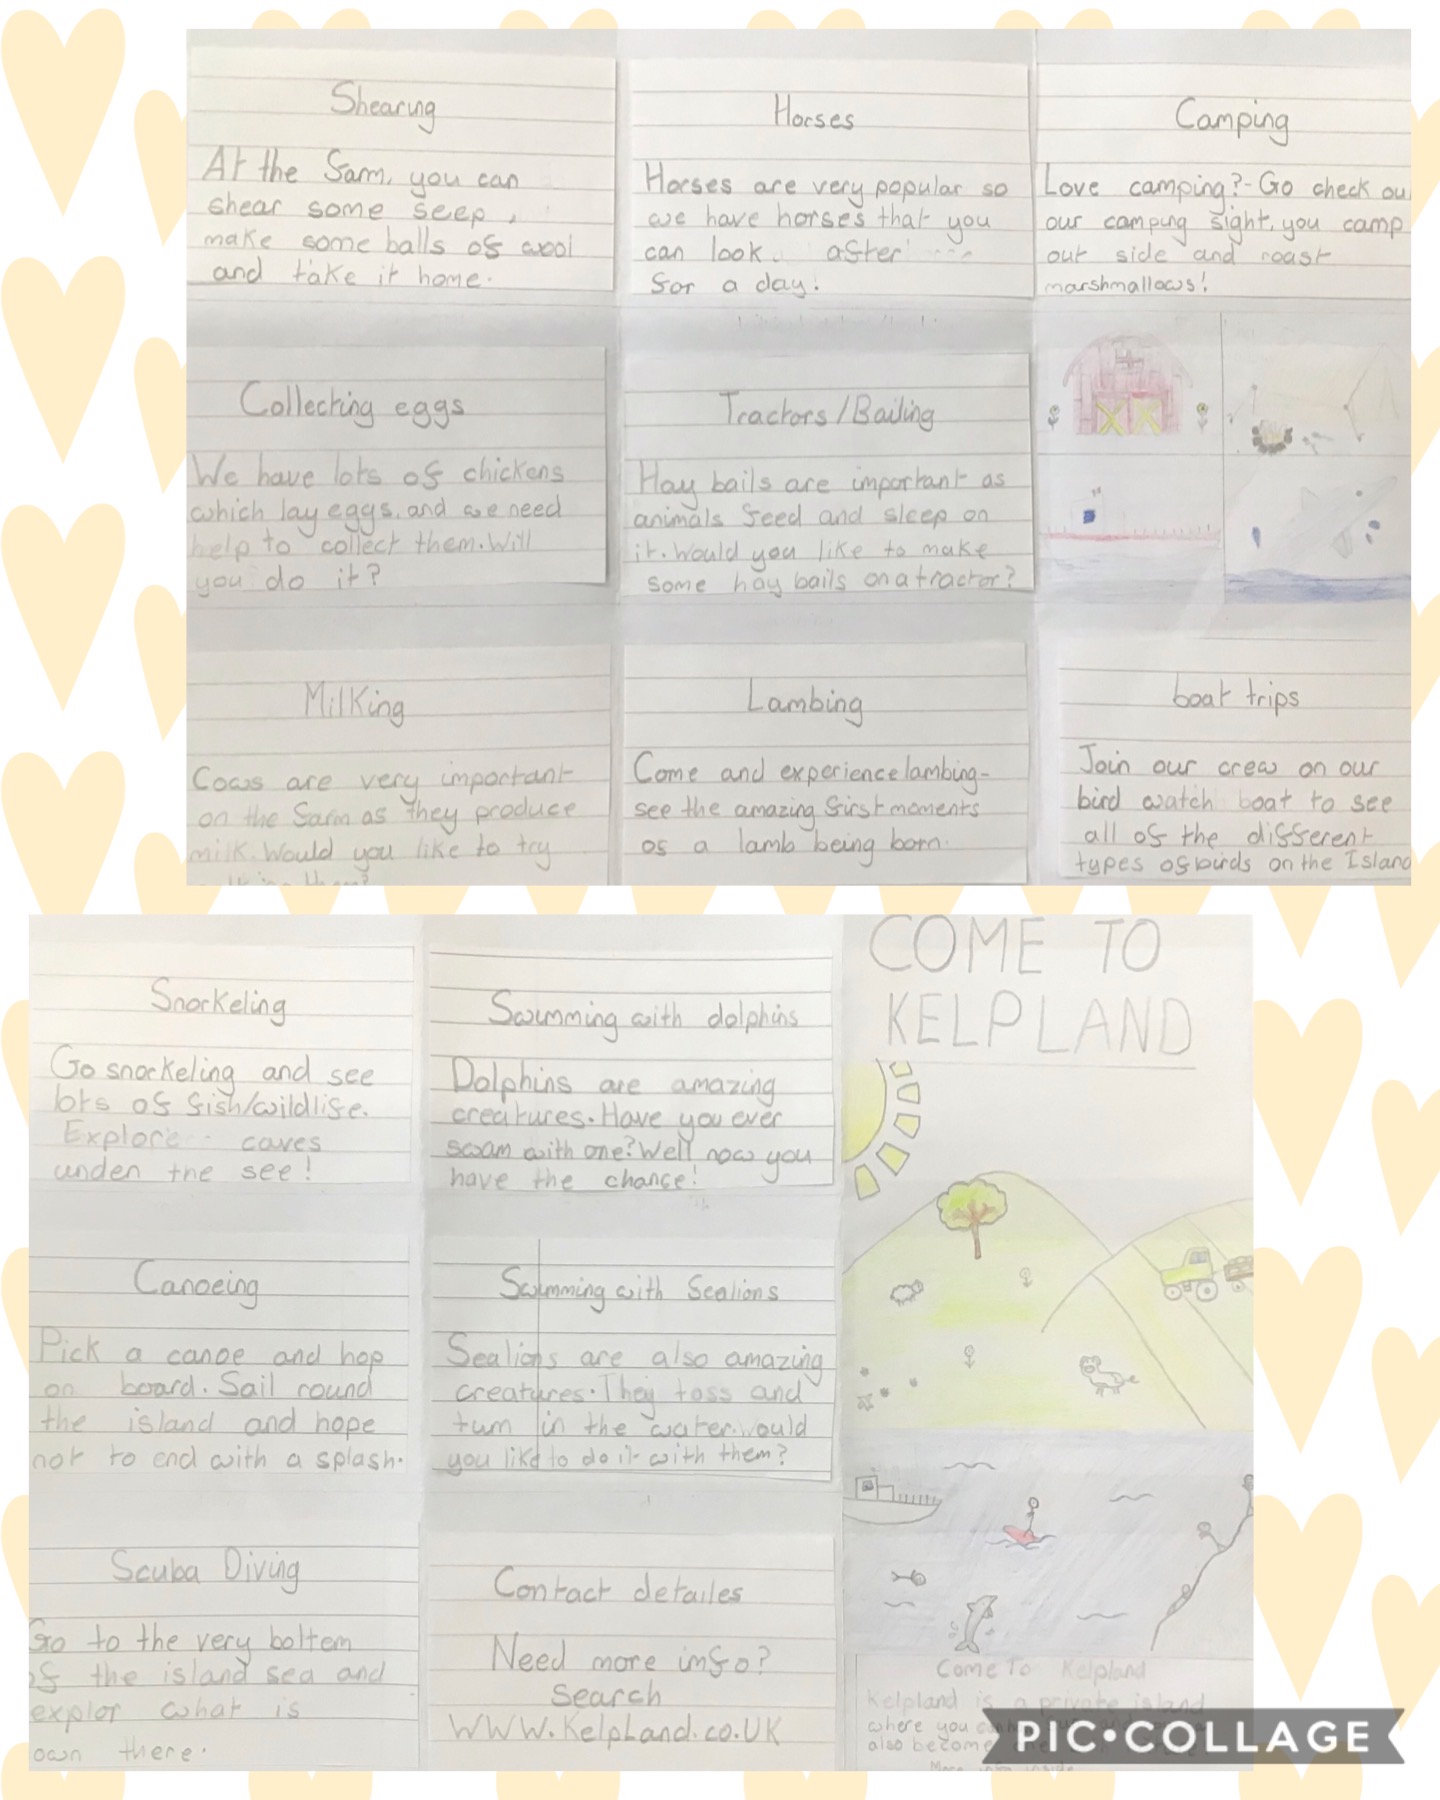 Shearing
At the farm, you can
shear some seep,
make some balls of wool
and take it home.
Horses
Horses are very popular so
we have horses that you
can look after
for a day!
Camping
Love camping?- Go check ou
our camping sight, you camp
out side and roast
marshmallows!
Collecting eggs
We have lots of chickens
which lay eggs, and we need
help to collect them. Will
you do it?
Tractors/Bailing
Hay bails are important as
animals feed and sleep on
it. Would you like to make
some hay bails on a tractor?
Milking
Cows are very important
on the farm as they produce
milk. Would you like to try
Lambing
Come and experience lambing-
see the amazing first moments
of a lamb being born.
boat trips
Join our crew on our
bird watch boat to see
all of the different
types of birds on the Island
Snorkeling
Go snorkeling and see
lots of fish/wildlife.
Explore caves
under the see!
Swimming with dolphins
Dolphins are amazing
creatures. Have you ever
swam with one? Well now you
have the chance!
COME TO
KELPLAND
Canoeing
Pick a canoe and hop
on board. Sail round
the island and hope
not to end with a splash.
Swimming with Sealions
Sealions are also amazing
creatures. They toss and
turn in the water. would
you like to do it with them?
Scuba Diving
Go to the very bottem
of the island sea and
explor what is
own there.
Contact detailes
Need more info?
Search
WWW.KelpLand.co.UK
Come To Kelpland
Kelpland is a private island
where you
also become
More info inside
PIC•COLLAGE